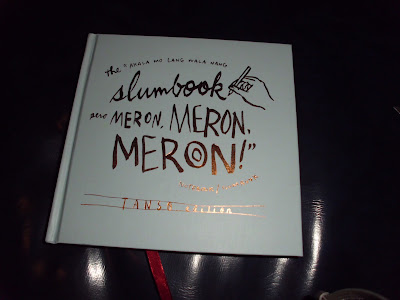 the "AKALA MO LANG WALA NANG
slumbook
pero MERON, MERON,
MERON!"
TANSO edition